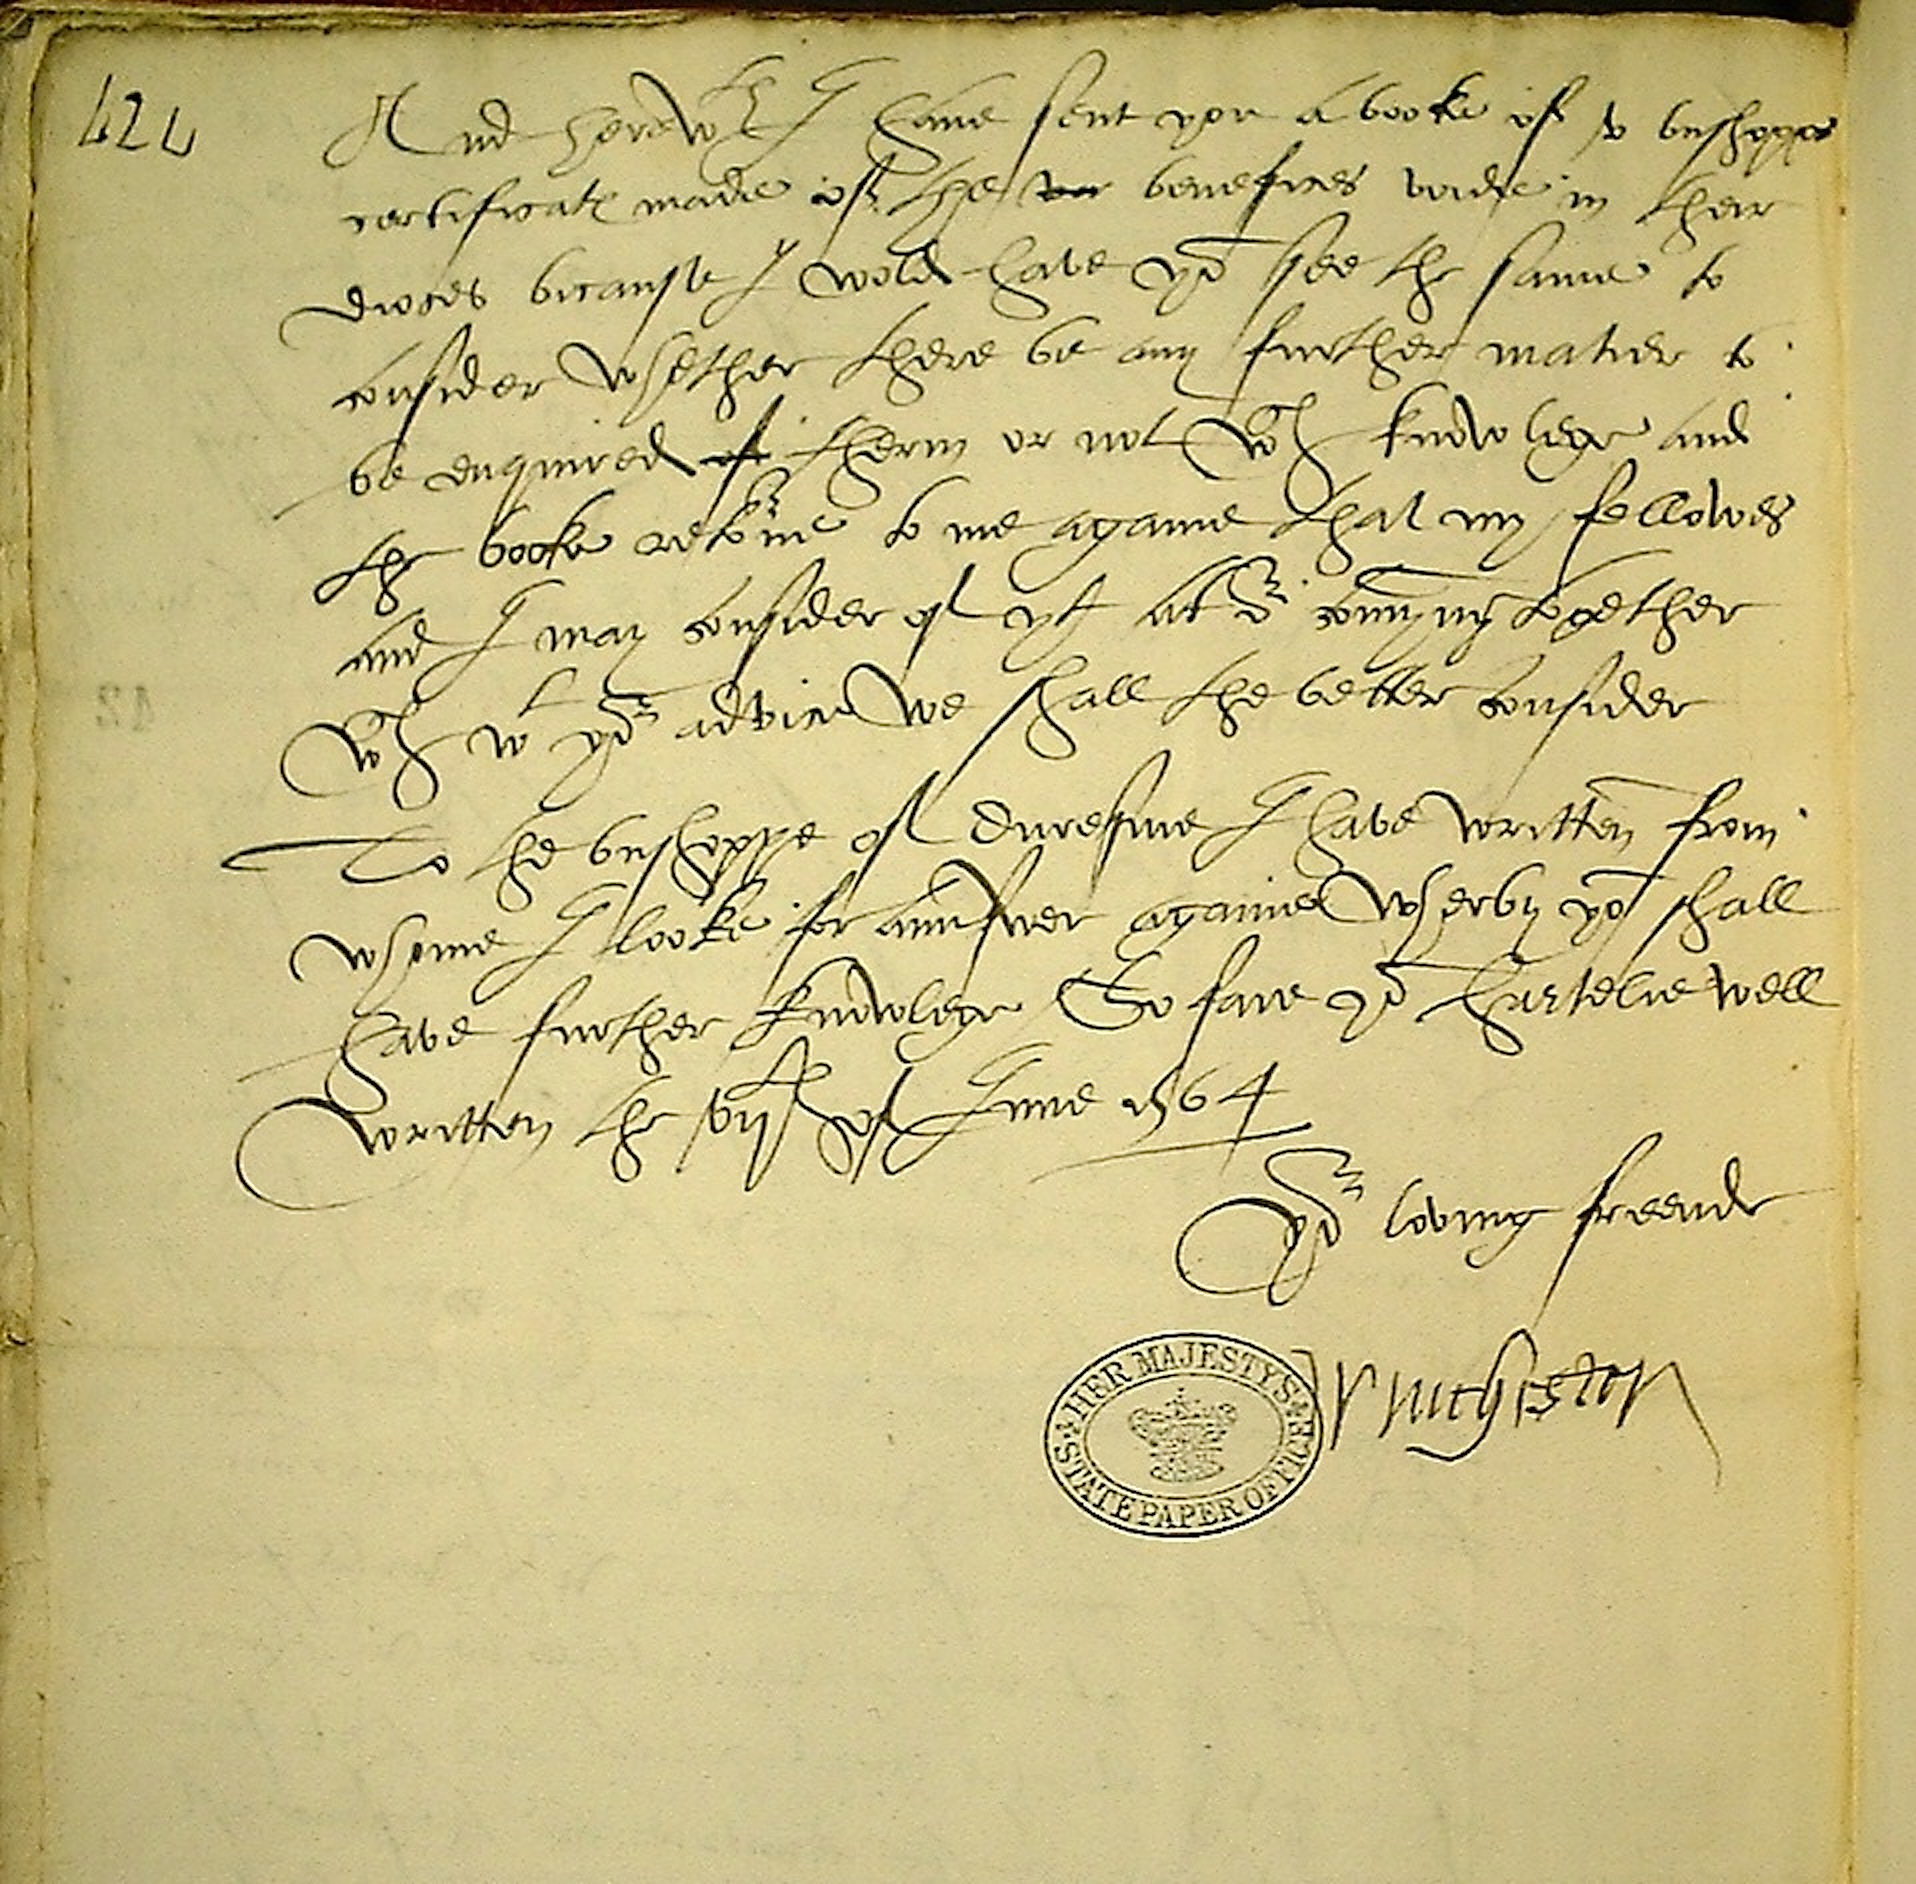 424
And herewth I have sent you a booke of v busshopps
certificate made of the benefices voide in their
dioces bicause I wold have yo see the same to
consider whether there be any further matier to
be enquired of therin or not wch knowlege and
the booke retorne to me againe that my fellowes
and I may consider of yt at or comyng together
wch wt yor advice we shall the better consider
To the busshoppe of Duresme I have written from
whome I looke for aunswer againe wherby yo shall
have further knowlege So fare yo hartelie well
Written the xvijth of June 1564
Yor loving freende
Winchester
HER MAJESTYS STATE PAPER OFFICE